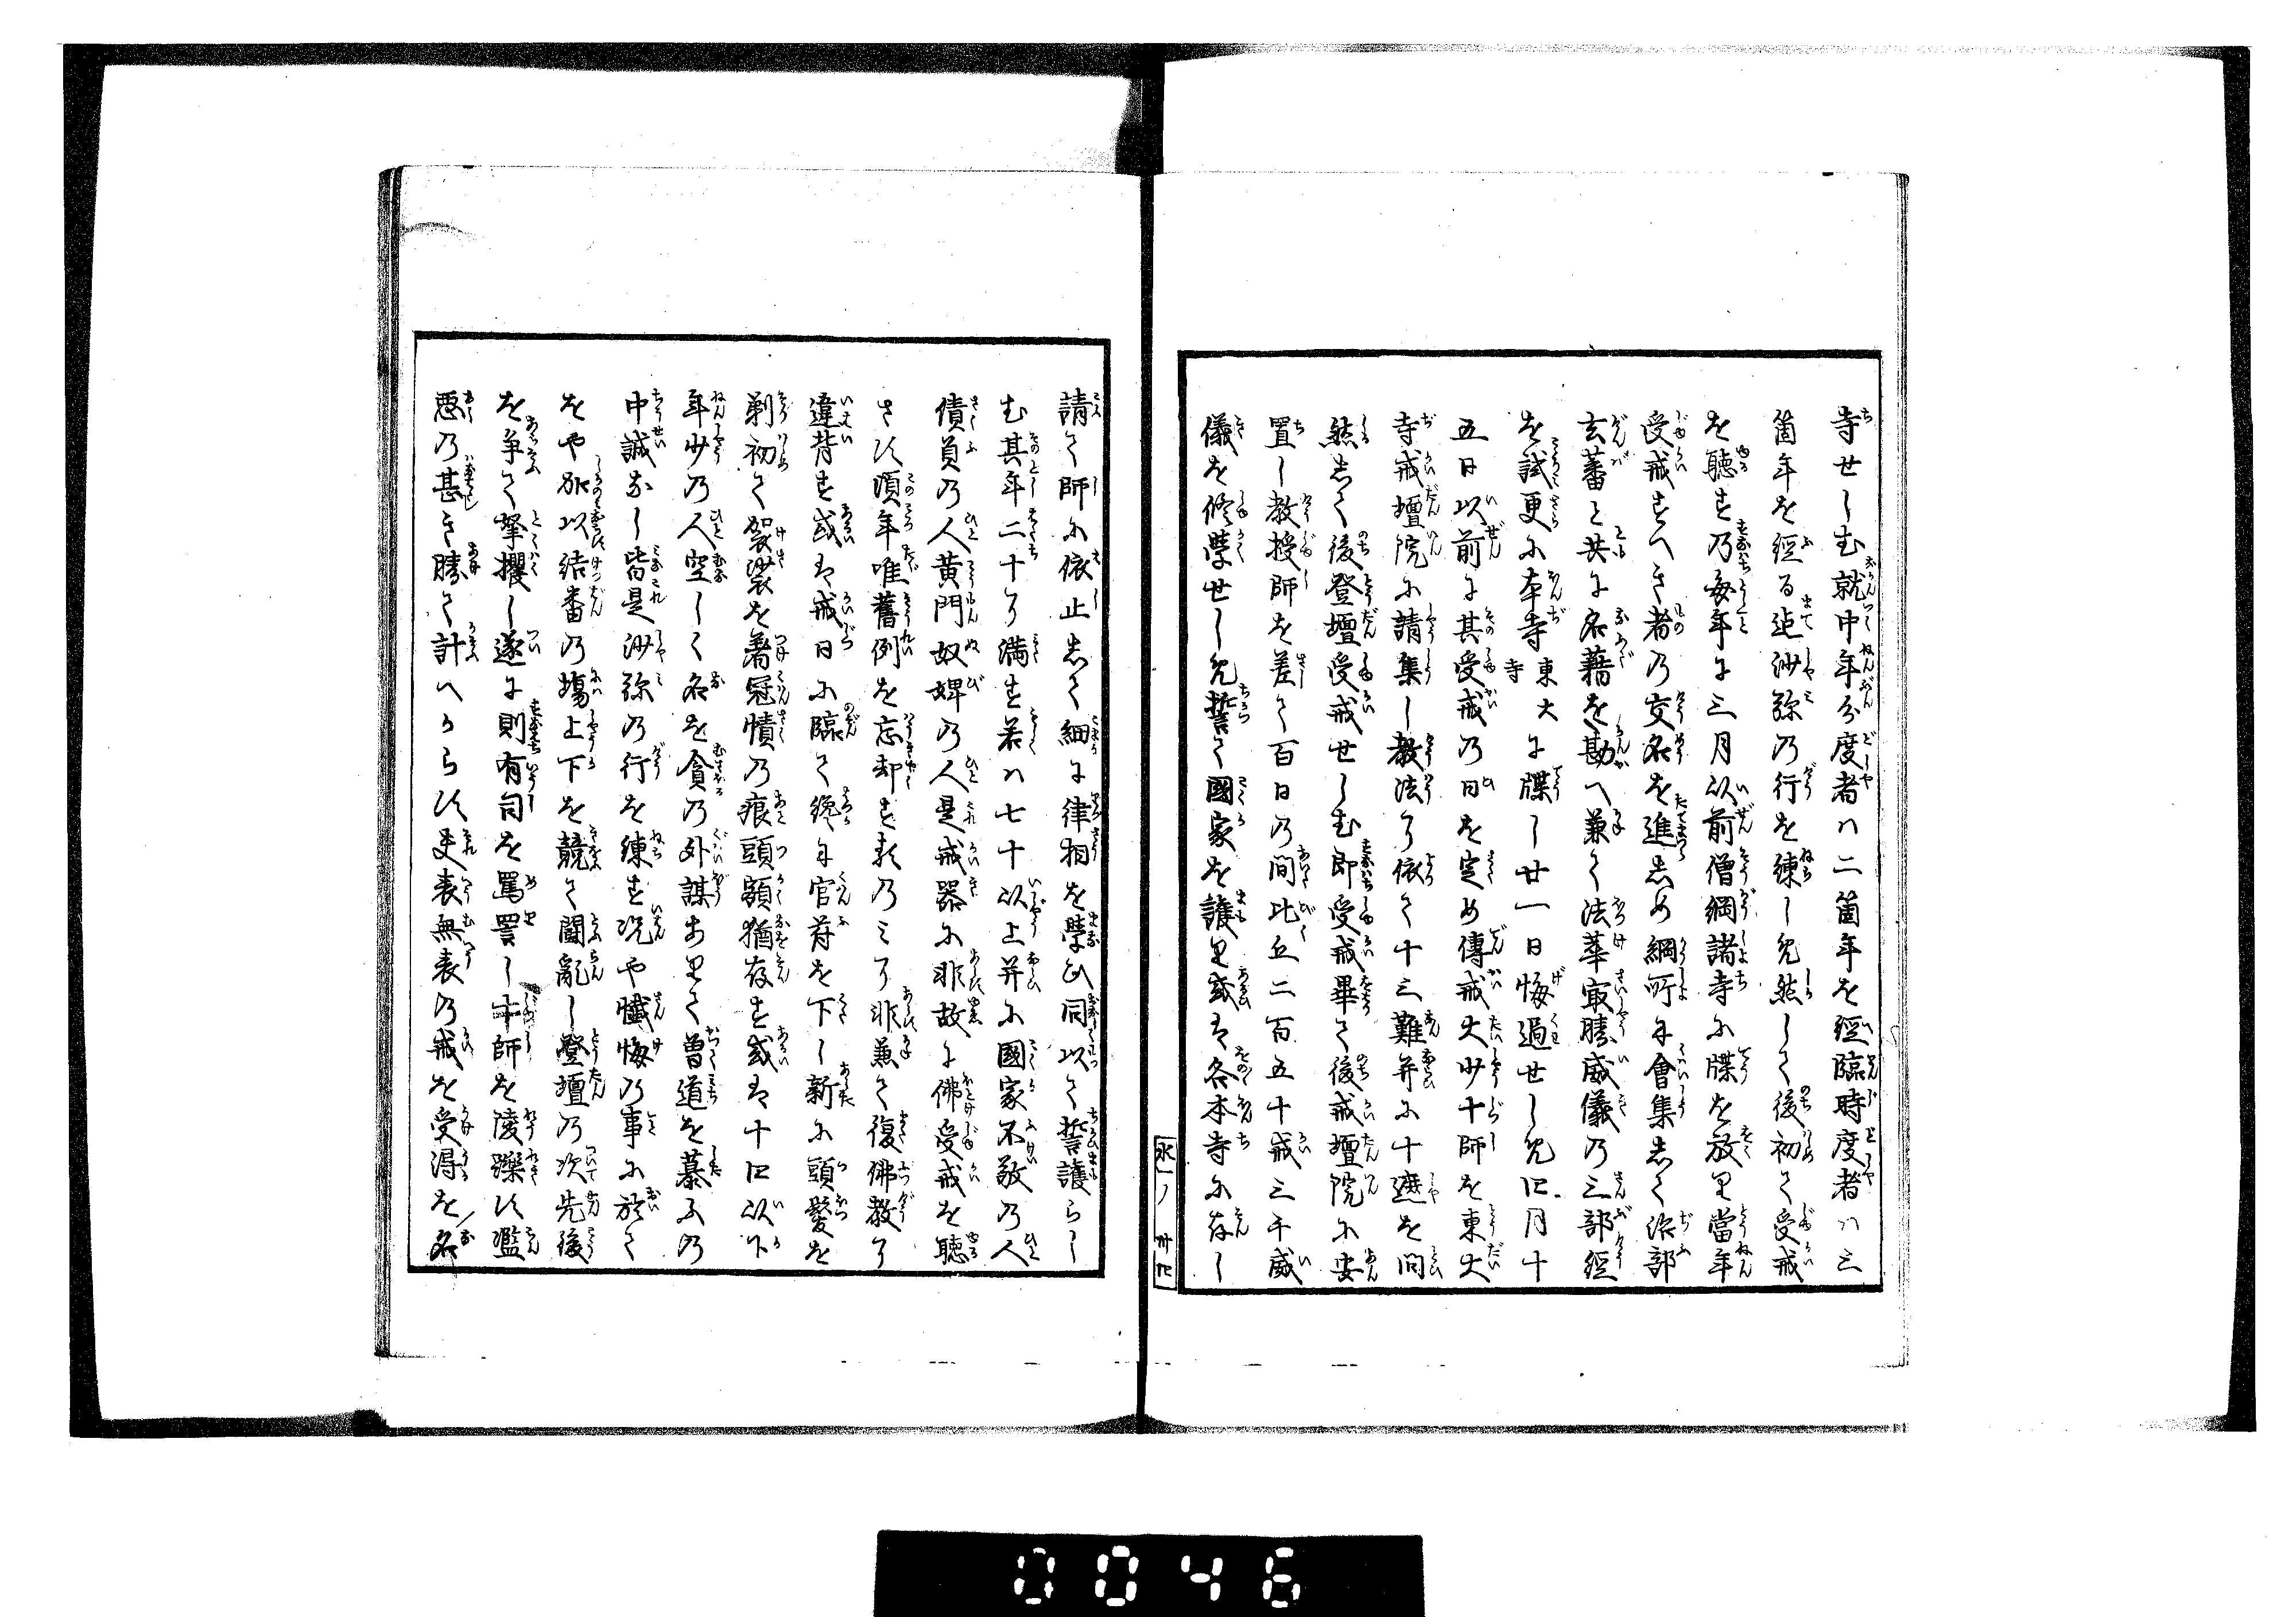 寺せしむ就中年分度者ハ二箇年を経臨時度者ハ三
箇年を経る迠沙弥乃行を練しむ然して後初て受戒
を聴す乃毎年に三月以前僧綱諸寺に牒を放て當年
受戒すへき者乃交名を進しめ綱所に會集して治部
玄蕃と共に名藉を勘へ兼て法華最勝威儀乃三部経
を試更に本寺東大寺に牒し廿一日悔過せしむ四月十
五日以前に其受戒乃日を定め傳戒大少十師を東大
寺戒壇院に請集し教法に依て十三難并に十遮を問
然して後登壇受戒せしむ即受戒畢て後戒壇院に安
置し教授師を差て百日乃間比丘二百五十戒三千威
儀を修學せしむ誓て國家を護り或は各本寺に存し
永一ノ 卅九
請て師に依止して細に律相を學ひ同以て誓護らし
む其年二十に満す若ハ七十以上并に國家不敬乃人
債負乃人黄門奴婢乃人是戒器に非故に佛受戒を聴
さす頃年唯舊例を忘却す耄乃ミに非兼て復佛教に
違背す或は戒日に臨て纔に官苻を下し新に頭髮を
剃初て袈裟を著冠幘乃痕頭額猶存す或は十四以下
年少乃人空しく名を貪乃外謀ありて曽道を慕ふ乃
中誠なし皆是沙弥乃行を練す况や懴悔乃事に於て
をや加以結番乃塲上下を競て鬪乱し登壇乃次先後
を争て拏攫し遂に則有司を罵詈し十師を陵轢す濫
悪乃甚き勝て計へからす是表無表乃戒を受得を名
0046